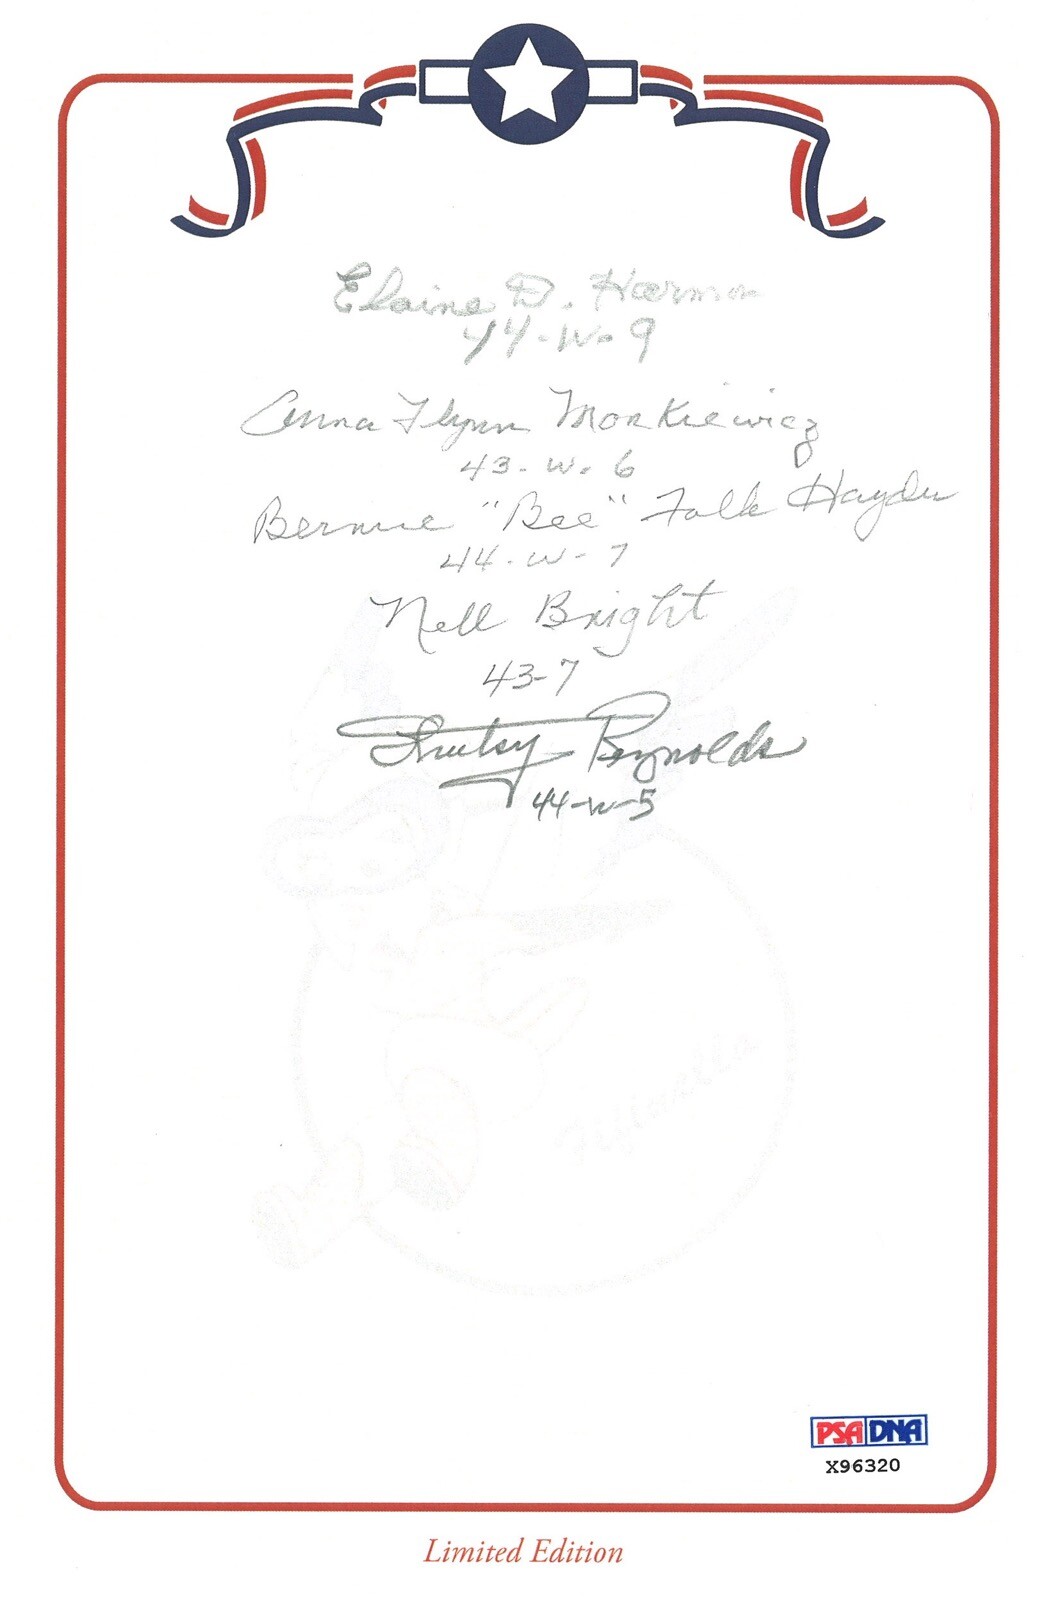 Elaine D. Harmon
44-W-9
Anna Flynn Monkiewicz
43-W-6
Bernice "Bee" Falk Haydu
44-W-7
Nell Bright
43-7
Shutsy Reynolds
44-W-5
Fifinella
PSA DNA
X96320
Limited Edition